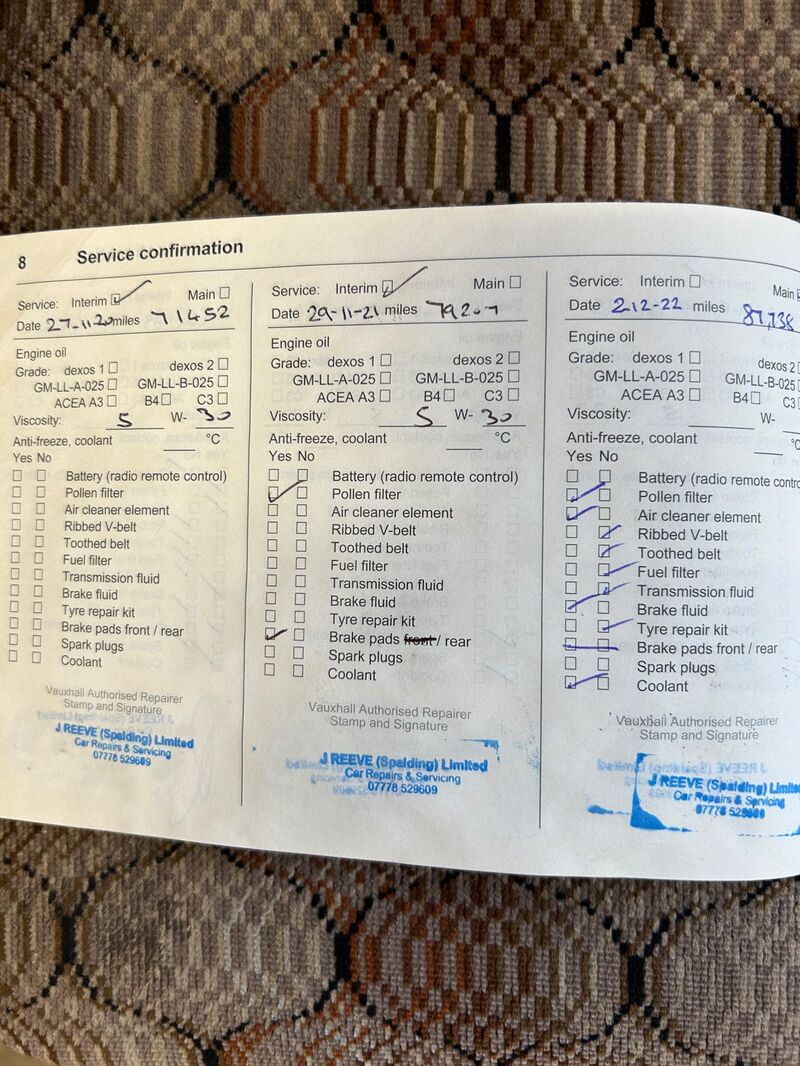 8 Service confirmation
Service: Interim Main
Date 27-11-20 miles 71452
Engine oil
Grade: dexos 1 dexos 2
GM-LL-A-025 GM-LL-B-025
ACEA A3 B4 C3
Viscosity: 5 W- 30
Anti-freeze, coolant °C
Yes No
Battery (radio remote control)
Pollen filter
Air cleaner element
Ribbed V-belt
Toothed belt
Fuel filter
Transmission fluid
Brake fluid
Tyre repair kit
Brake pads front / rear
Spark plugs
Coolant
Vauxhall Authorised Repairer
Stamp and Signature
J REEVE (Spalding) Limited
Car Repairs & Servicing
07778 529609
Service: Interim Main
Date 29-11-21 miles
Engine oil
Grade: dexos 1 dexos 2
GM-LL-A-025 GM-LL-B-025
ACEA A3 B4 C3
Viscosity: 5 W- 30
Anti-freeze, coolant °C
Yes No
Battery (radio remote control)
Pollen filter
Air cleaner element
Ribbed V-belt
Toothed belt
Fuel filter
Transmission fluid
Brake fluid
Tyre repair kit
Brake pads front / rear
Spark plugs
Coolant
Vauxhall Authorised Repairer
Stamp and Signature
J REEVE (Spalding) Limited
Car Repairs & Servicing
07778 529609
Service: Interim Main
Date 2.12-22 miles 87,138
Engine oil
Grade: dexos 1 dexos 2
GM-LL-A-025 GM-LL-B-025
ACEA A3 B4 C3
Viscosity: W-
Anti-freeze, coolant °C
Yes No
Battery (radio remote contro
Pollen filter
Air cleaner element
Ribbed V-belt
Toothed belt
Fuel filter
Transmission fluid
Brake fluid
Tyre repair kit
Brake pads front / rear
Spark plugs
Coolant
Vauxhall Authorised Repairer
Stamp and Signature
J REEVE (Spalding) Limite
Car Repairs & Servicing
07778 529609